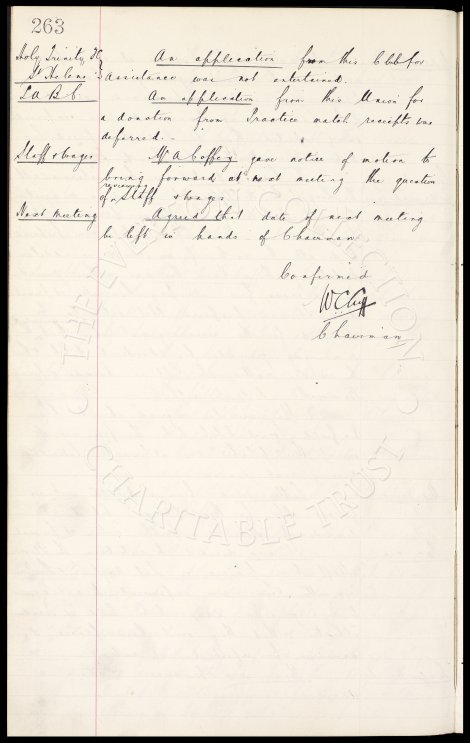 263
Holy Trinity FC
St Helens
An application from this Club for
assistance was not entertained.
L A B C.
An application from this Union for
a donation from Practice match receipts was
deferred. -
Staff & Wages
Mr A Coffey gave notice of motion to
bring forward at next meeting the question
of reviewing Staff & Wages
Next Meeting
Agreed that date of next meeting
be left in hands of Chairman
Confirmed
W C Cuff
Chairman
THE EVERTON COLLECTION
CHARITABLE TRUST